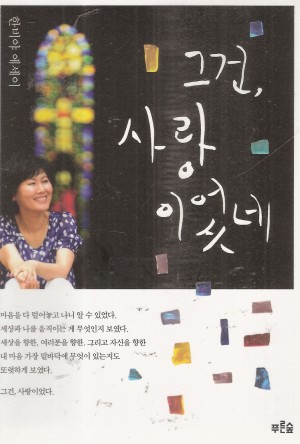 한비야 에세이
그건,
사랑
이었네
마음을 다 털어놓고 나니 알 수 있었다.
세상과 나를 움직이는 게 무엇인지 보였다.
세상을 향한, 여러분을 향한, 그리고 자신을 향한
내 마음 가장 밑바닥에 무엇이 있는지도
또렷하게 보였다.
그건, 사랑이었다.
푸른숲